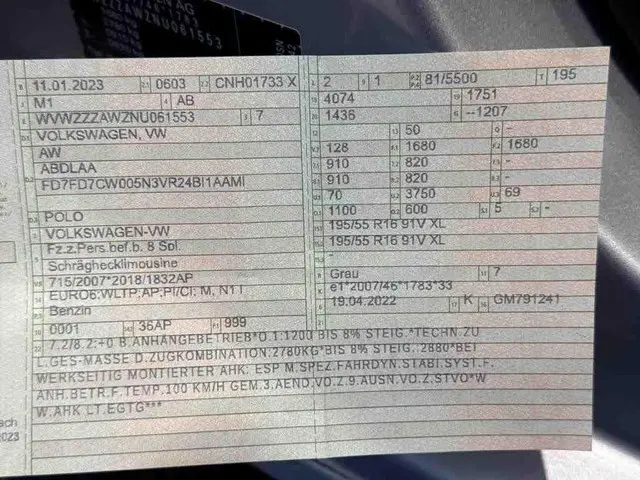 11.01.2023 0603 CNH01733 X 2 1 81/5500 195
M1 AB 4074 1751
WVWZZZAWZNU061553 7 1436 --1207
VOLKSWAGEN, VW 50 -
AW 128 1680 1680
ABDLAA 910 820 -
FD7FD7CW005N3VR24BI1AAMI 910 820 -
70 3750 69
POLO 1100 600 5 -
VOLKSWAGEN-VW 195/55 R16 91V XL
Fz.z.Pers.bef.b. 8 Spl. 195/55 R16 91V XL
Schräghecklimousine -
715/2007*2018/1832AP Grau 7
EURO6;WLTP;AP;PI/CI; M, N1 I e1*2007/46*1783*33
Benzin 19.04.2022 K GM791241
0001 36AP 999
7.2/8.2:+0 B.ANHÄNGEBETRIEB*O.1:1200 BIS 8% STEIG.*TECHN.ZU
L.GES-MASSE D.ZUGKOMBINATION:2780KG*BIS 8% STEIG.:2880*BEI
WERKSEITIG MONTIERTER AHK: ESP M.SPEZ.FAHRDYN.STABI.SYST.F.
ANH.BETR.F.TEMP.100 KM/H GEM.3.AEND.VO.Z.9.AUSN.VO.Z.STVO*W
W.AHK LT.EGTG***